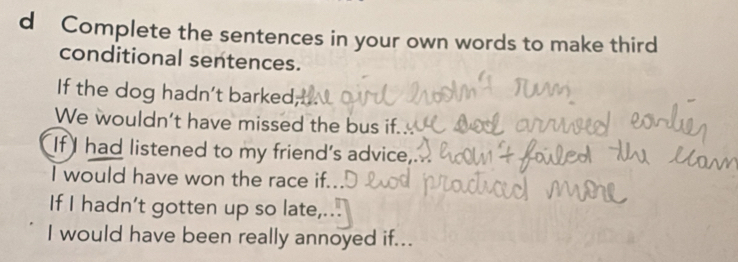 d Complete the sentences in your own words to make third
conditional sentences.
If the dog hadn't barked,... the girl hadn't run.
We wouldn't have missed the bus if... we had arrived earlier
If I had listened to my friend's advice,... I hadn't failed the exam
I would have won the race if... I had practiced more
If I hadn't gotten up so late,... I
I would have been really annoyed if...